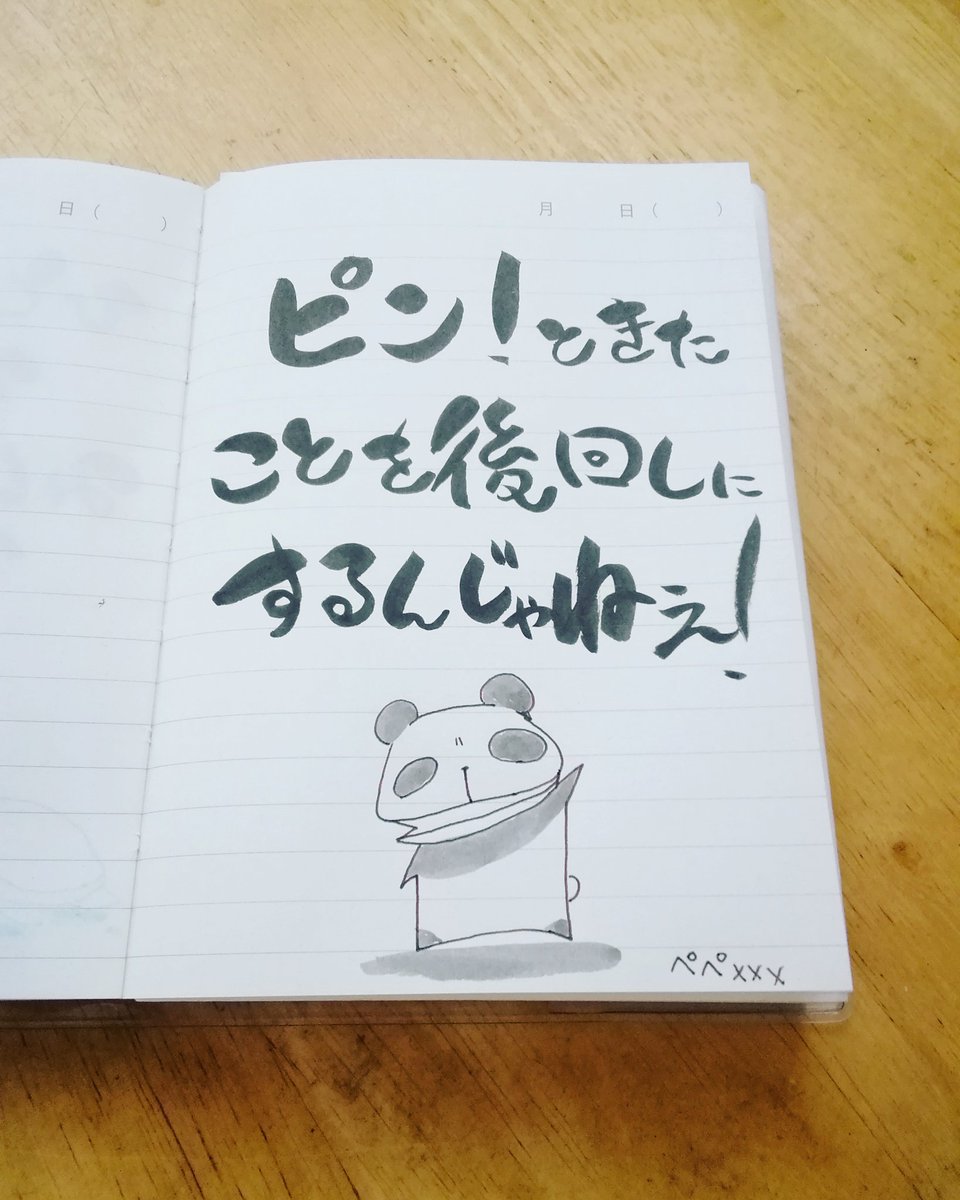 日（　　）
月　　日（　　）
ピン！ときた
ことを後回しに
するんじゃねぇ！
ペペxxx